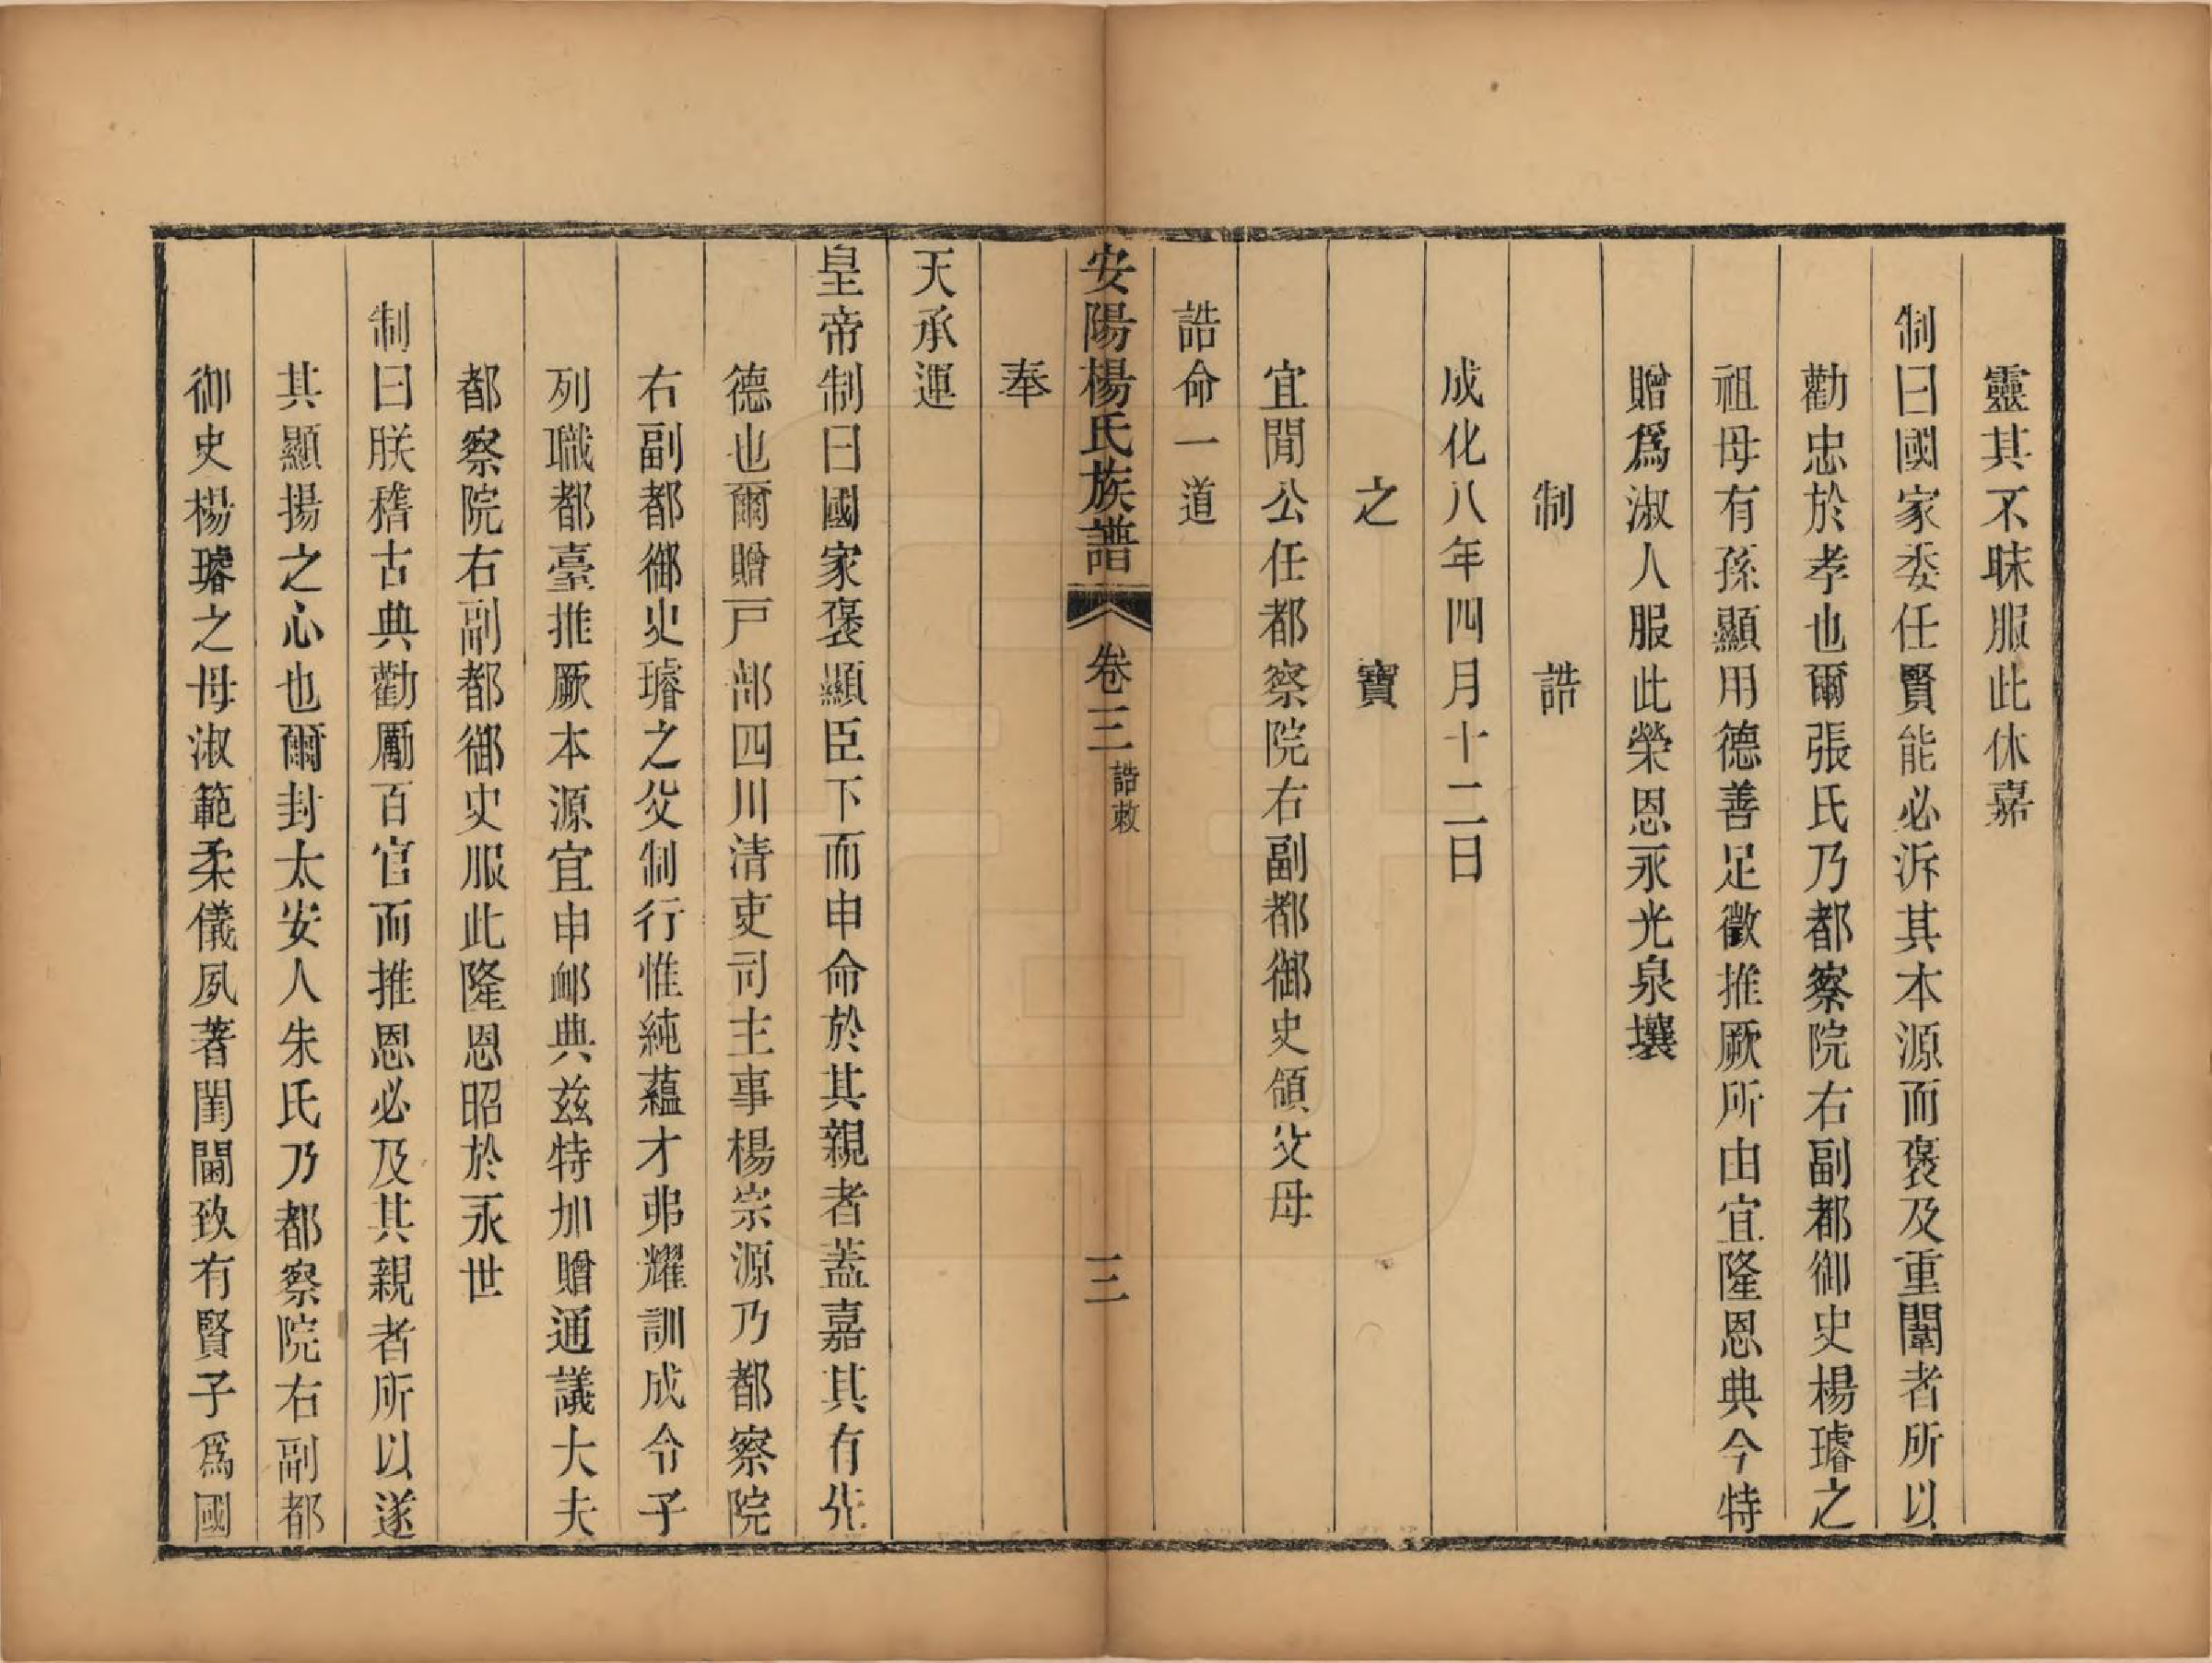 靈其不昧服此休嘉
制曰國家委任賢能必泝其本源而褒及重闈者所以
勸忠於孝也爾張氏乃都察院右副都御史楊璿之
祖母有孫顯用德善足徵推厥所由宜隆恩典今特
贈爲淑人服此榮恩永光泉壤
制誥
成化八年四月十二日
之寶
宜閒公任都察院右副都御史領父母
誥命一道
安陽楊氏族譜 卷三 誥敕 三
奉
天承運
皇帝制曰國家褒顯臣下而申命於其親者蓋嘉其有先
德也爾贈戸部四川清吏司主事楊宗源乃都察院
右副都御史璿之父制行惟純蘊才弗耀訓成令子
列職都臺推厥本源宜申卹典兹特加贈通議大夫
都察院右副都御史服此隆恩昭於永世
制曰朕稽古典勸勵百官而推恩必及其親者所以遂
其顯揚之心也爾封太安人朱氏乃都察院右副都
御史楊璿之母淑範柔儀夙著閨閫致有賢子爲國